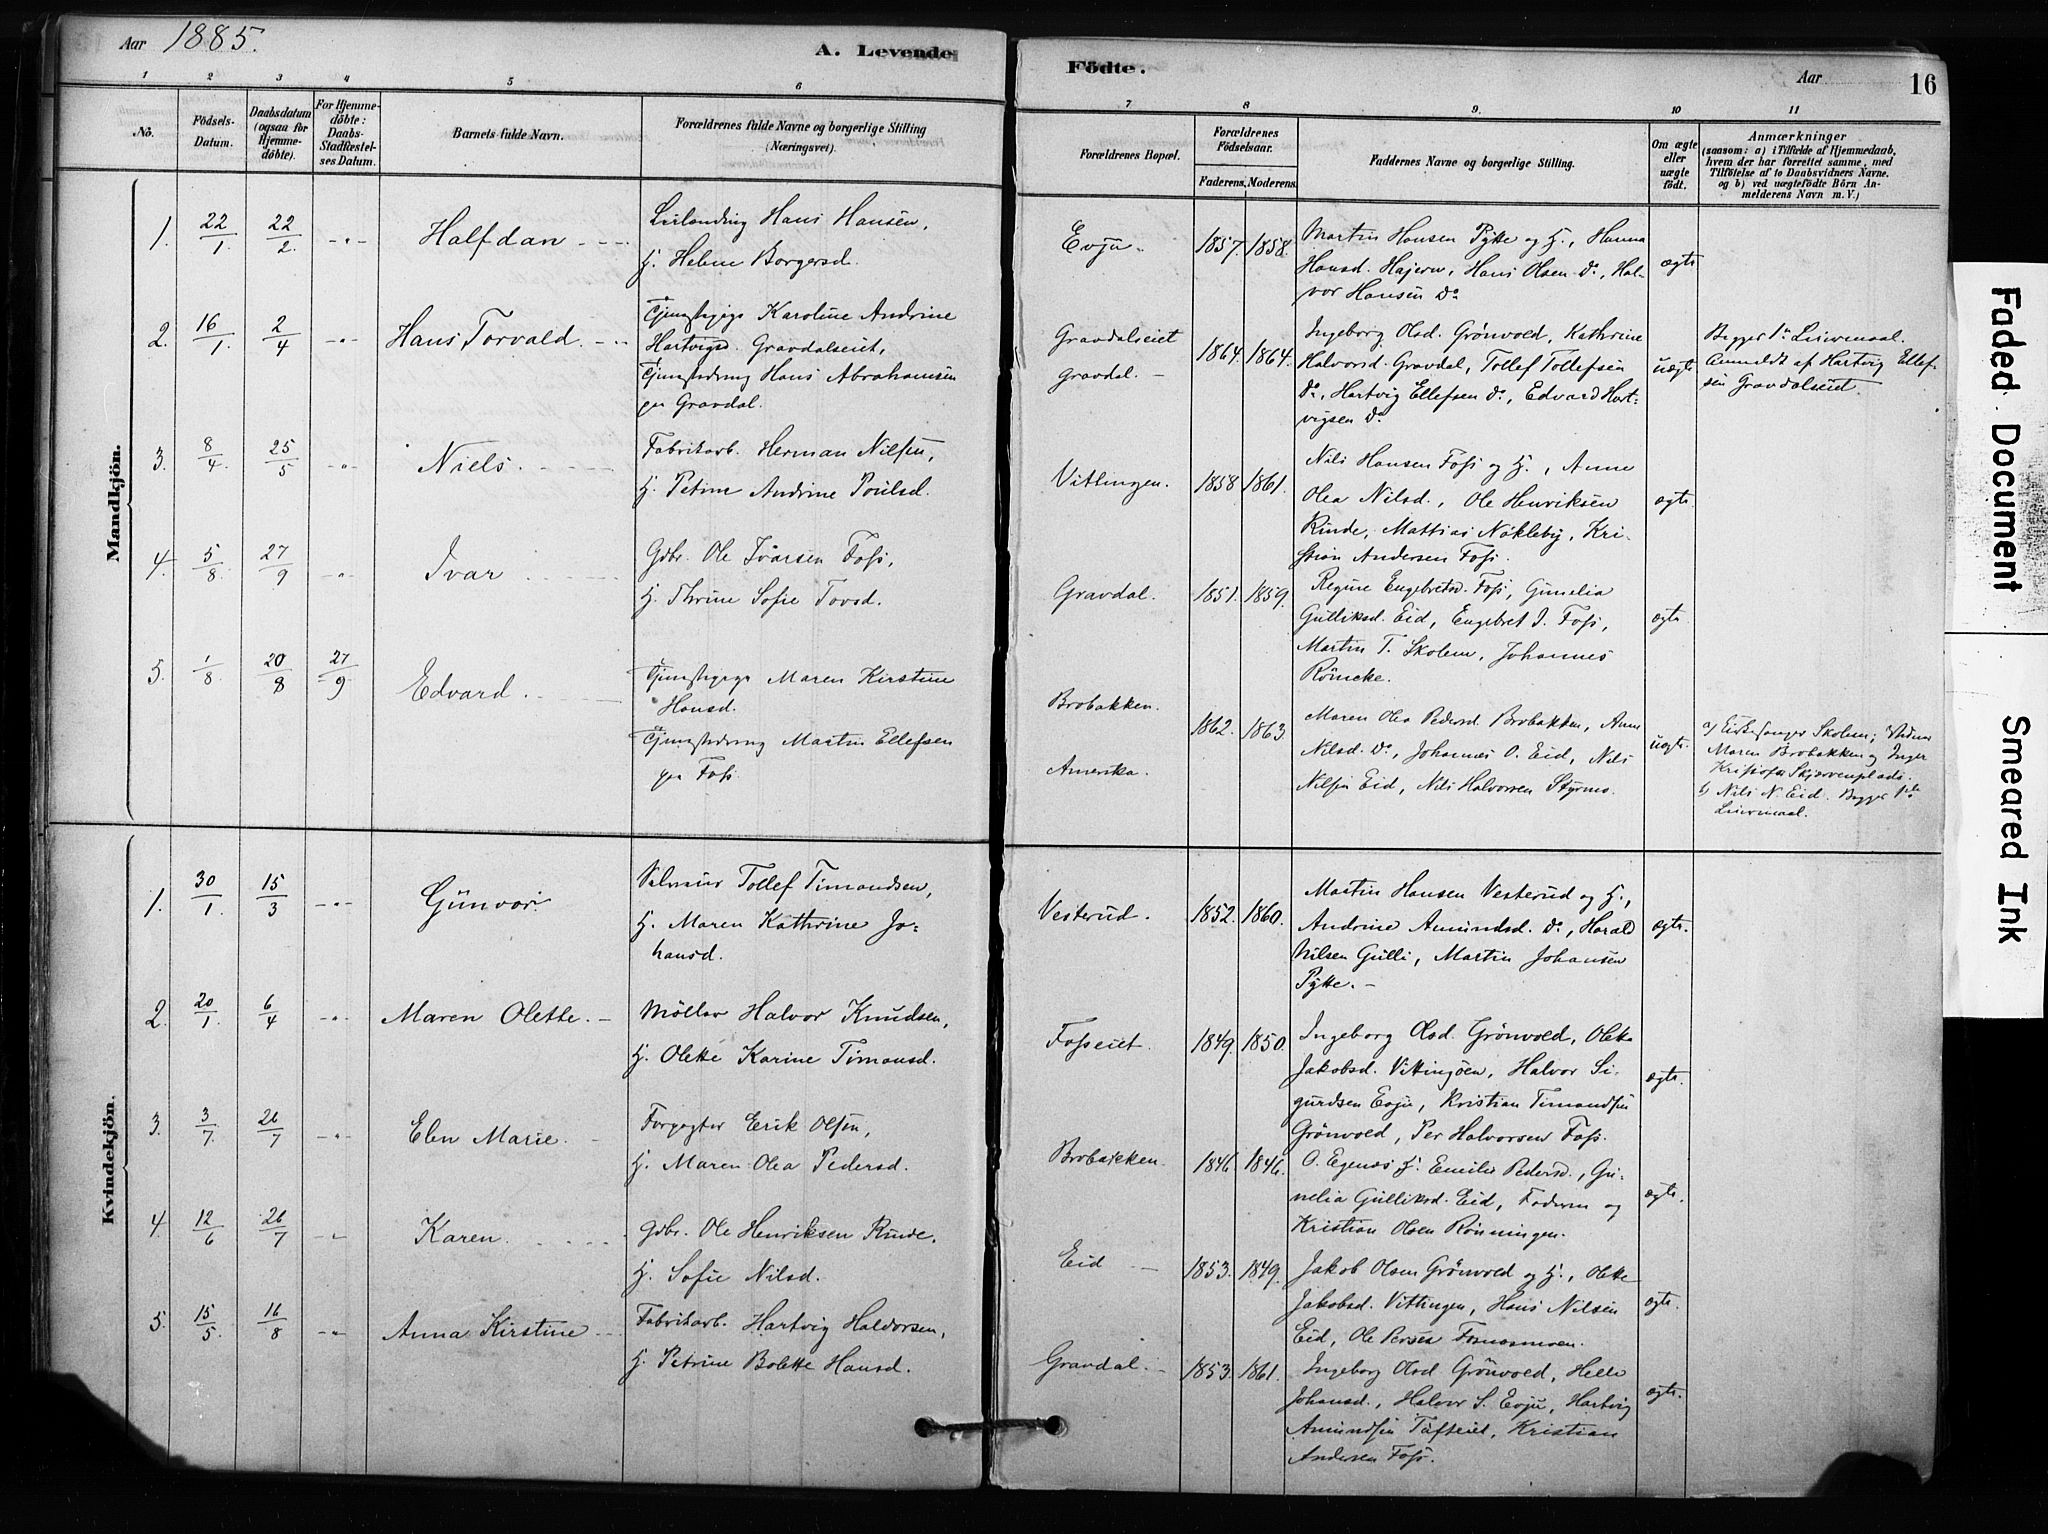 Aar 1885.
A. Levende
1 2 3 4 5 6
No.
Födsels-
Datum.
Daabsdatum
(ogsaa for
Hjemme-
döbte).
For Hjemme-
döbte:
Daabs-
Stadfæstel-
ses Datum.
Barnets fulde Navn.
Forældrenes fulde Navne og borgerlige Stilling
(Næringsvei).
Mandkjön.
1. 22/1. 22/2. -"- Halfdan
Hans Hansen,
H. Helene Borgersd.
2. 16/1. 2/4 -"- Hans Torvald.
Karoline Andrine
Hartvigsd. Gravdalseiet,
Hans Abrahamsen
Gravdal.
3. 8/4. 25/5 -"- Niels.
Fabrikarb. Herman Nilsen,
H. Petine Andrine Poulsd.
4. 5/8. 27/9 -"- Ivar
Gdbr. Ole Ivarsen Foss,
H. Thrine Sofie Tovsd.
5. 1/8 20/8 27/9 Edvard.
Maren Kirstine
Hansd.
Martin Ellefsen
Foss
Kvindekjön.
1. 30/1. 15/3 -"- Gunvor.
Tollef Timandsen,
H. Maren Kathrine Jo-
hansd.
2. 20/1. 6/4 -"- Maren Olette.
Möller Halvor Knudsen,
H. Olette Karine Timansd.
3. 3/7. 26/7 -"- Elen Marie.
Forpagter Erik Olsen,
H. Maren Olea Pedersd.
4. 12/6 26/7 -"- Karen.
Gdbr. Ole Henriksen Rinde,
H. Sofie Nilsd.
5. 15/5. 16/8 -"- Anna Kirstine
Fabrikarb. Hartvig Haldorsen,
H. Petrine Bolette Hansd.
Födte.
Aar
16
7 8 9. 10 11
Forældrenes Bopæl.
Forældrenes
Födselsaar.
Faderens. Moderens.
Faddernes Navne og borgerlige Stilling.
Om ægte
eller
uægte
födt.
Anmærkninger
(saasom: a) i Tilfælde af Hjemmedaab,
hvem der har forrettet samme, med
Tilföielse af to Daabsvidners Navne.
og b) ved uægtefödte Börn An-
melderens Navn m.V.)
Evju. 1857. 1858. ægte
Martin Hansen Pytte og H., Hanna
Hansd. Hajern, Hans Olsen Do, Hal-
vor Hansen Do
Gravdalseiet
Gravdal. 1864. 1864. uægte
Ingeborg Olsd. Grönvold, Kathrine
Halvorsd. Gravdal, Tollef Tollefsen
Do, Hartvig Ellefsen Do, Edvard Hart-
vigsen Do
Begges 1ste Leiermaal.
Anmeldt af Hartvig Ellef-
sen Gravdalseiet
Vittingen. 1858 1861. ægte
Nils Hansen Foss og H., Anne
Olea Nilsd., Ole Henriksen
Rinde, Mattias Nökleby, Kri-
stian Andersen Foss.
Gravdal. 1851. 1859. ægte
Regine Engebretsd. Foss, Gunelia
Gulliksd. Eid, Engebret I. Foss,
Martin T. Skolem, Johannes
Römcke.
Brobakken.
Amerika. 1862. 1863. uægte.
Maren Olea Pedersd. Brobakken, Anne
Nilsd. Do, Johannes O. Eid, Nils
Nilsen Eid, Nils Halvorsen Styrmo.
a) Kirkesanger Skolem; Vidner
Maren Brobakken og Inger
Skjervenplads.
b) Nils N. Eid. Begges 1ste
Leiermaal.
Vesterud. 1852. 1860. ægte.
Martin Hansen Vesterud og H.,
Andrine Amundsd. Do, Harald
Nilsen Gulli, Martin Johansen
Pytte.
Fosseiet. 1849. 1850. ægte.
Ingeborg Olsd. Grönvold, Olette
Jakobsd. Vittingöen, Halvor Si-
gurdsen Evju, Kristian Timandsen
Grönvold, Per Halvorsen Foss.
Brobakken. 1846 1846. ægte.
O. Egenæs H. Emilie Pedersd., Gu-
nelia Gulliksd. Eid, Faderen og
Kristian Olsen Rönningen.
Eid 1853. 1849. ægte.
Jakob Olsen Grönvold og H., Olette
Jakobsd. Vittingen, Hans Nilsen
Eid, Ole
Gravdal. 1853. 1861. ægte.
Ingeborg Olsd. Grönvold, Helle
Johansd., Halvor S. Evju, Hartvig
Amundsen Tufteiet, Kristian
Andersen Foss.
Faded Document
Smeared Ink